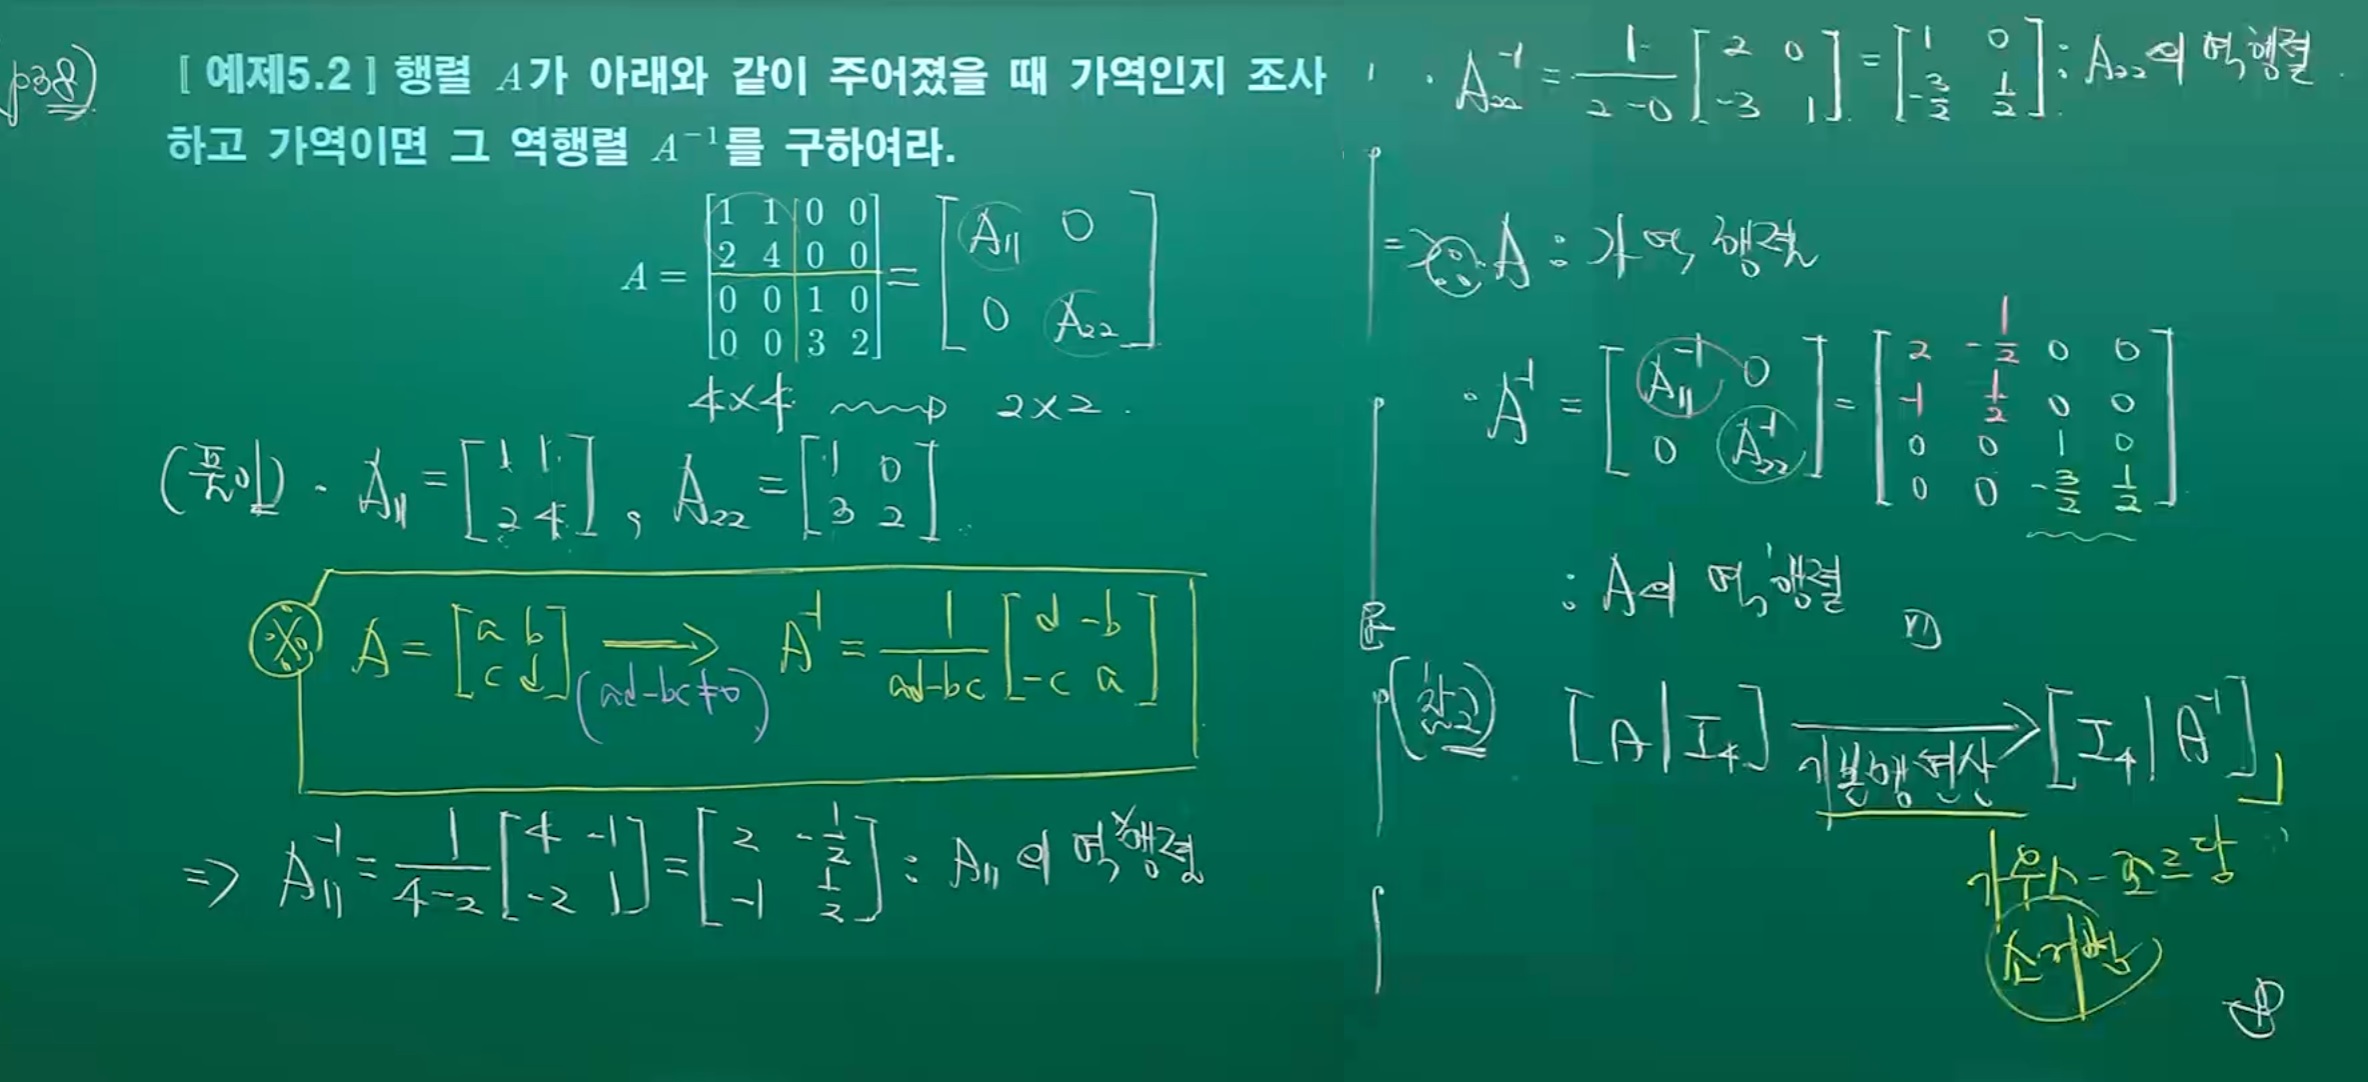 p38)
[ 예제5.2 ] 행렬 A가 아래와 같이 주어졌을 때 가역인지 조사
하고 가역이면 그 역행렬 A⁻¹를 구하여라.
A = [1 1 0 0; 2 4 0 0; 0 0 1 0; 0 0 3 2] = [A₁₁ 0; 0 A₂₂]
4×4 → 2×2.
(풀이) · A₁₁ = [1 1; 2 4], A₂₂ = [1 0; 3 2]
※ A = [a b; c d] → (ad-bc≠0) A⁻¹ = 1/(ad-bc) [d -b; -c a]
⇒ A₁₁⁻¹ = 1/(4-2) [4 -1; -2 1] = [2 -1/2; -1 1/2] : A₁₁의 역행렬
· A₂₂⁻¹ = 1/(2-0) [2 0; -3 1] = [1 0; -3/2 1/2] : A₂₂의 역행렬.
⇒ ∴ A : 가역행렬
· A⁻¹ = [A₁₁⁻¹ 0; 0 A₂₂⁻¹] = [2 -1/2 0 0; -1 1/2 0 0; 0 0 1 0; 0 0 -3/2 1/2]
: A의 역행렬
(참고) [A | I₄] → [I₄ | A⁻¹]
기본행연산
가우스-조르당
소거법